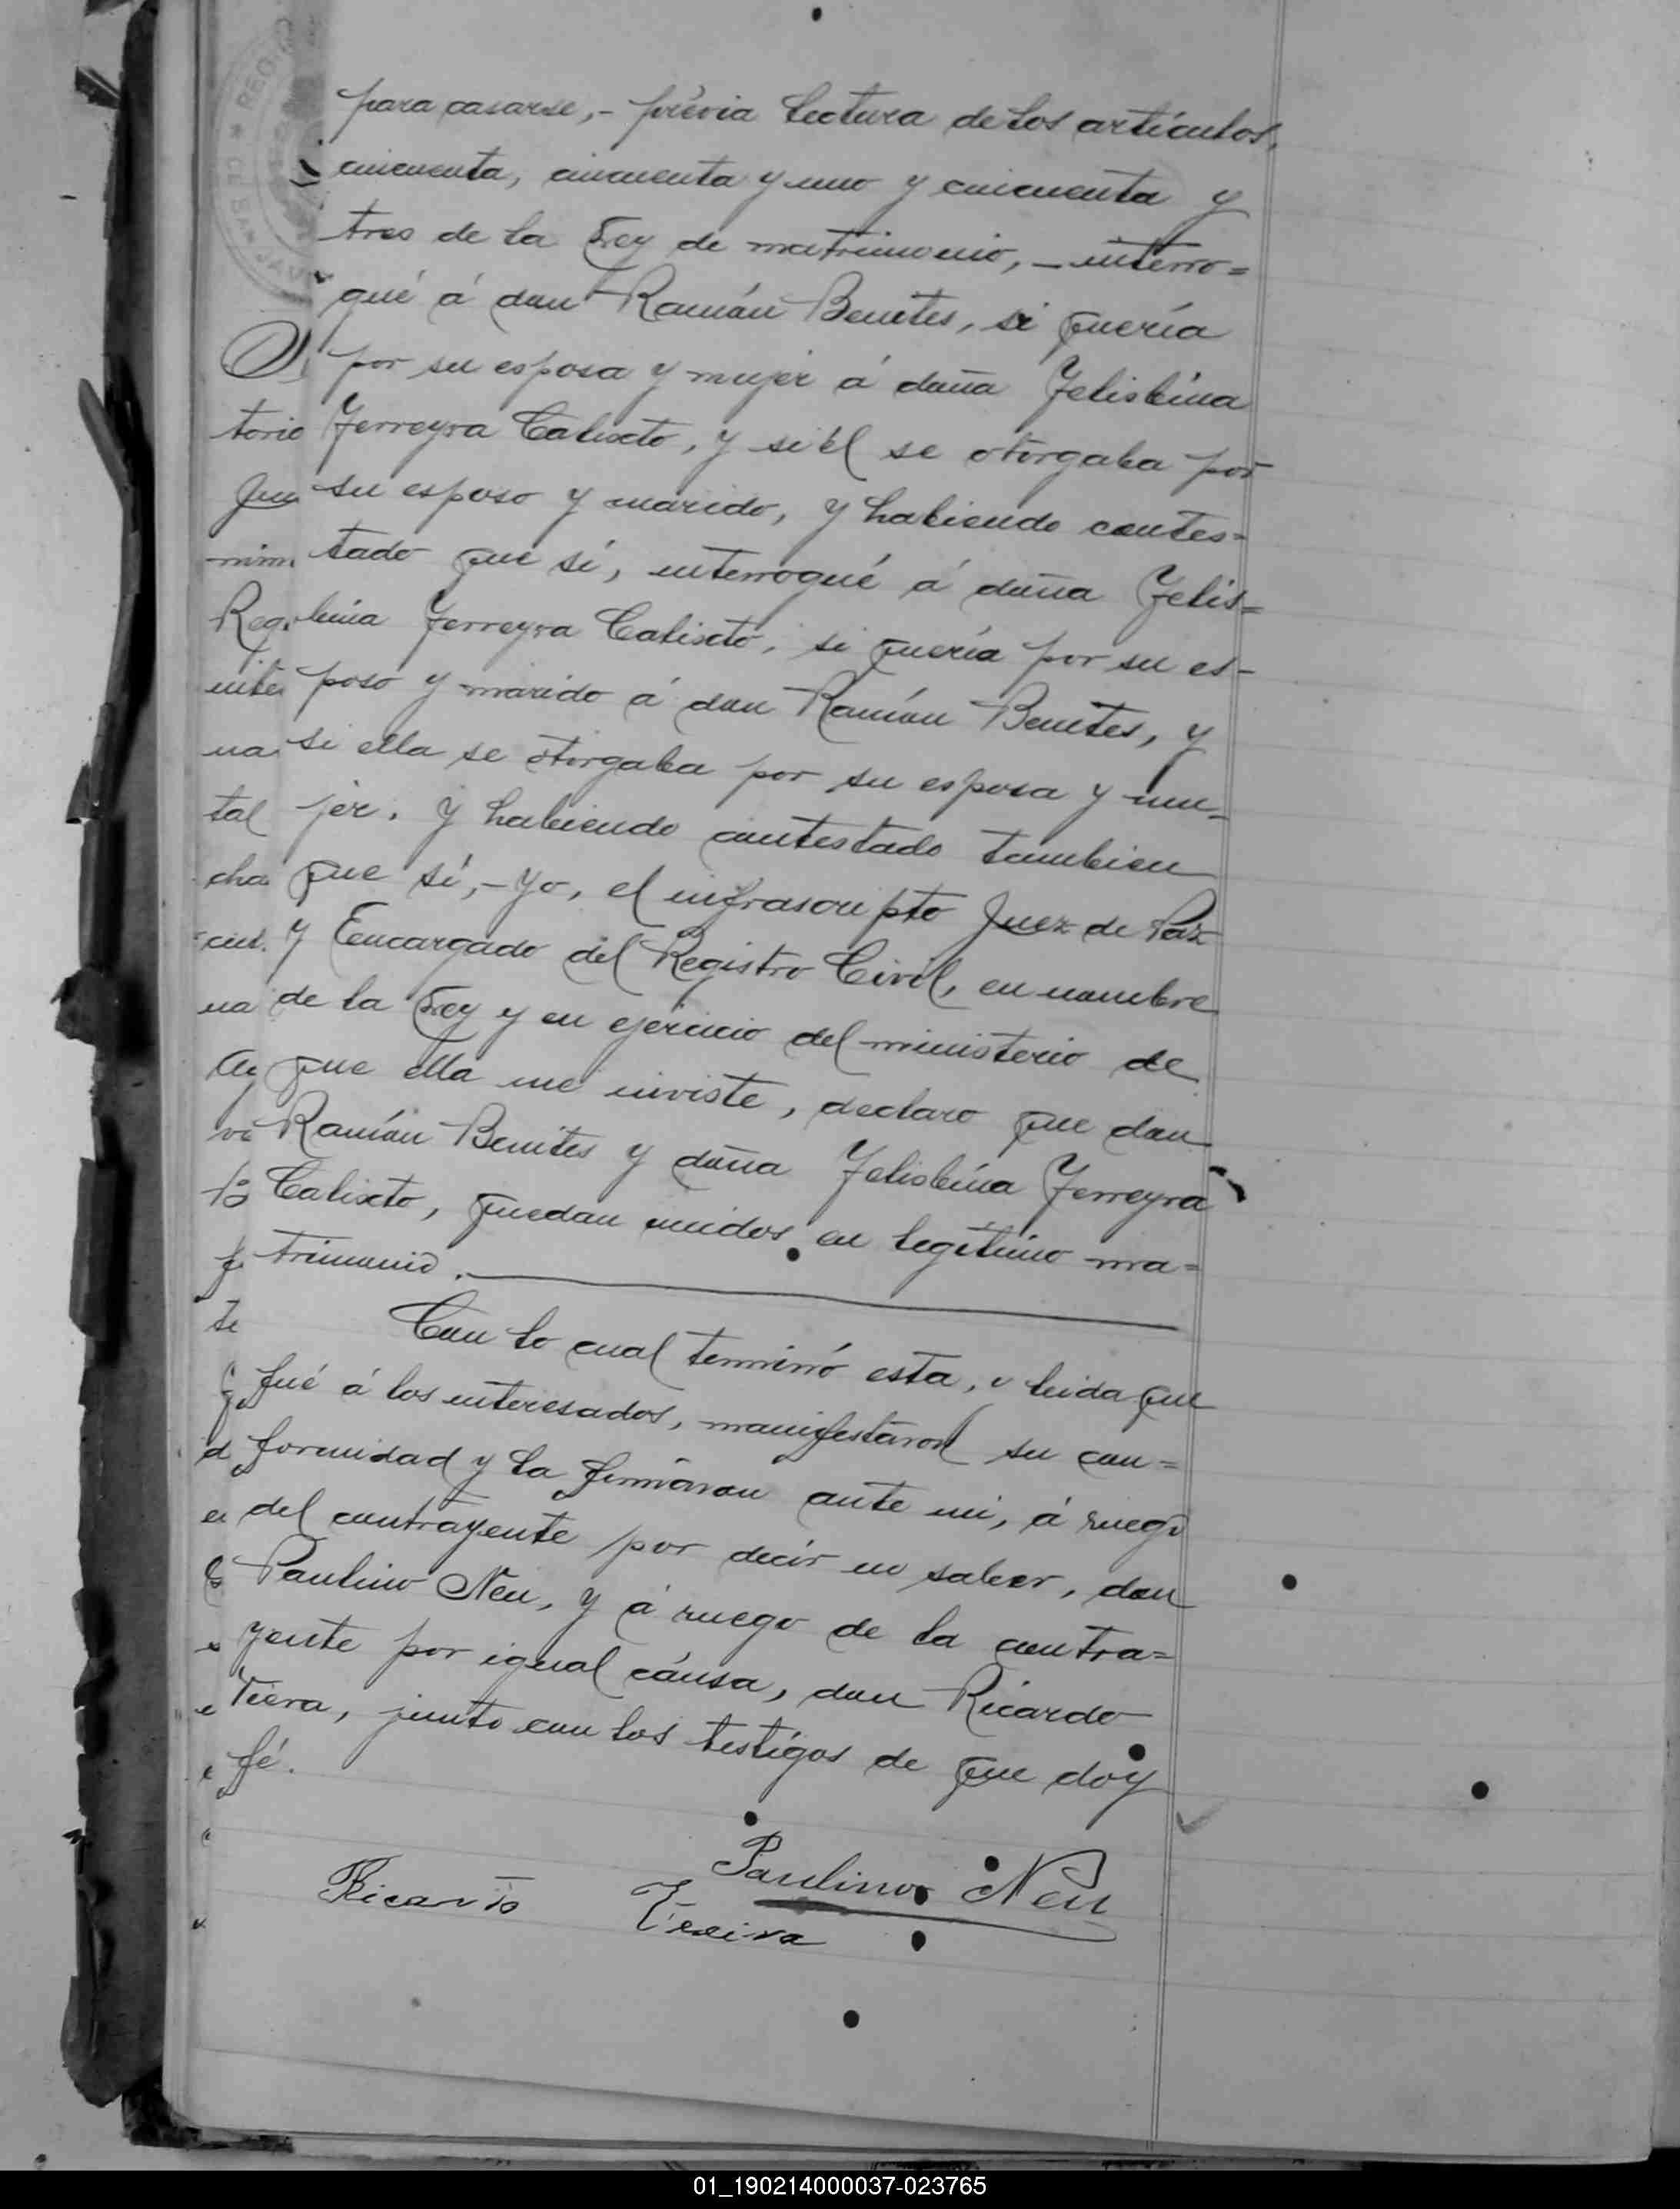 para casarse,- prévia lectura de los artículos,
cincuenta, cincuenta y uno y cincuenta y
tres de la Ley de matrimonio, - interro=
gué á don Ramón Benites, si quería
por su esposa y mujer á doña Felisbina
Ferreyra Calixto, y si él se otorgaba por
su esposo y marido, y habiendo contes=
tado que sí, interrogué á doña Felis=
bina Ferreyra Calixto, si quería por su es-
poso y marido á don Ramón Benites, y
si ella se otorgaba por su esposa y mu-
jer. Y habiendo contestado tambien
que sí,- yo, el infrascripto Juez de Paz
y Encargado del Registro Civil, en nombre
de la Ley y en ejercicio del ministerio de
que ella me inviste, declaro que don
Ramón Benites y doña Felisbina Ferreyra
Calixto, quedan unidos en legítimo ma=
trimonio.
Con lo cual terminó esta, y leida que
fué á los interesados, manifestaron su con=
formidad y la firmaron ante mi, á ruego
del contrayente por decir no saber, don
Paulino Neu, y á ruego de la contra=
yente por igual cáusa, don Ricardo
junto con los testigos de que doy
fé.
Paulino Neu
Ricardo
01_190214000037-023765